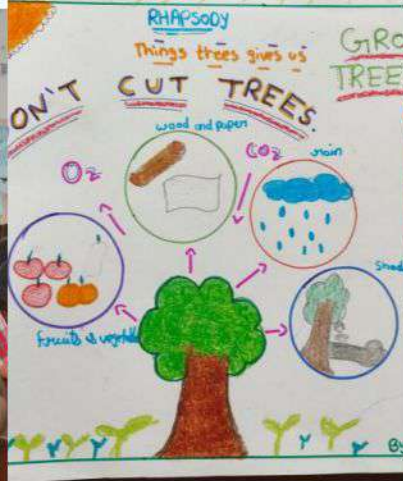 RHAPSODY
Things trees gives us
GRO
TREE
ON'T CUT TREES.
wood and paper
O2
CO2
rain
Shad
fruits & vegetabl
By